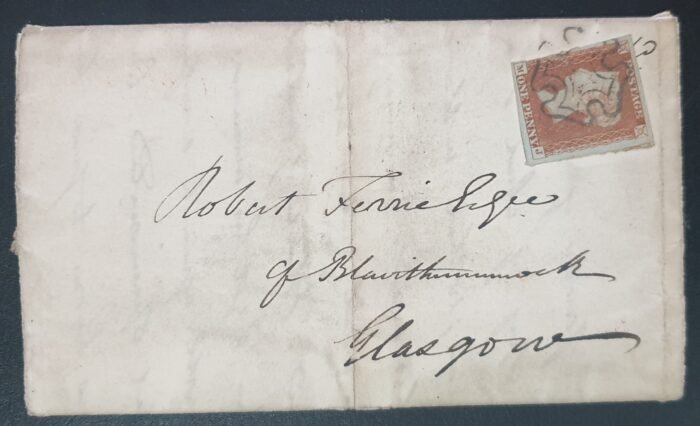 POSTAGE
ONE PENNY
M J
Robert Ferrie Esqre
of Blairthummock
Glasgow